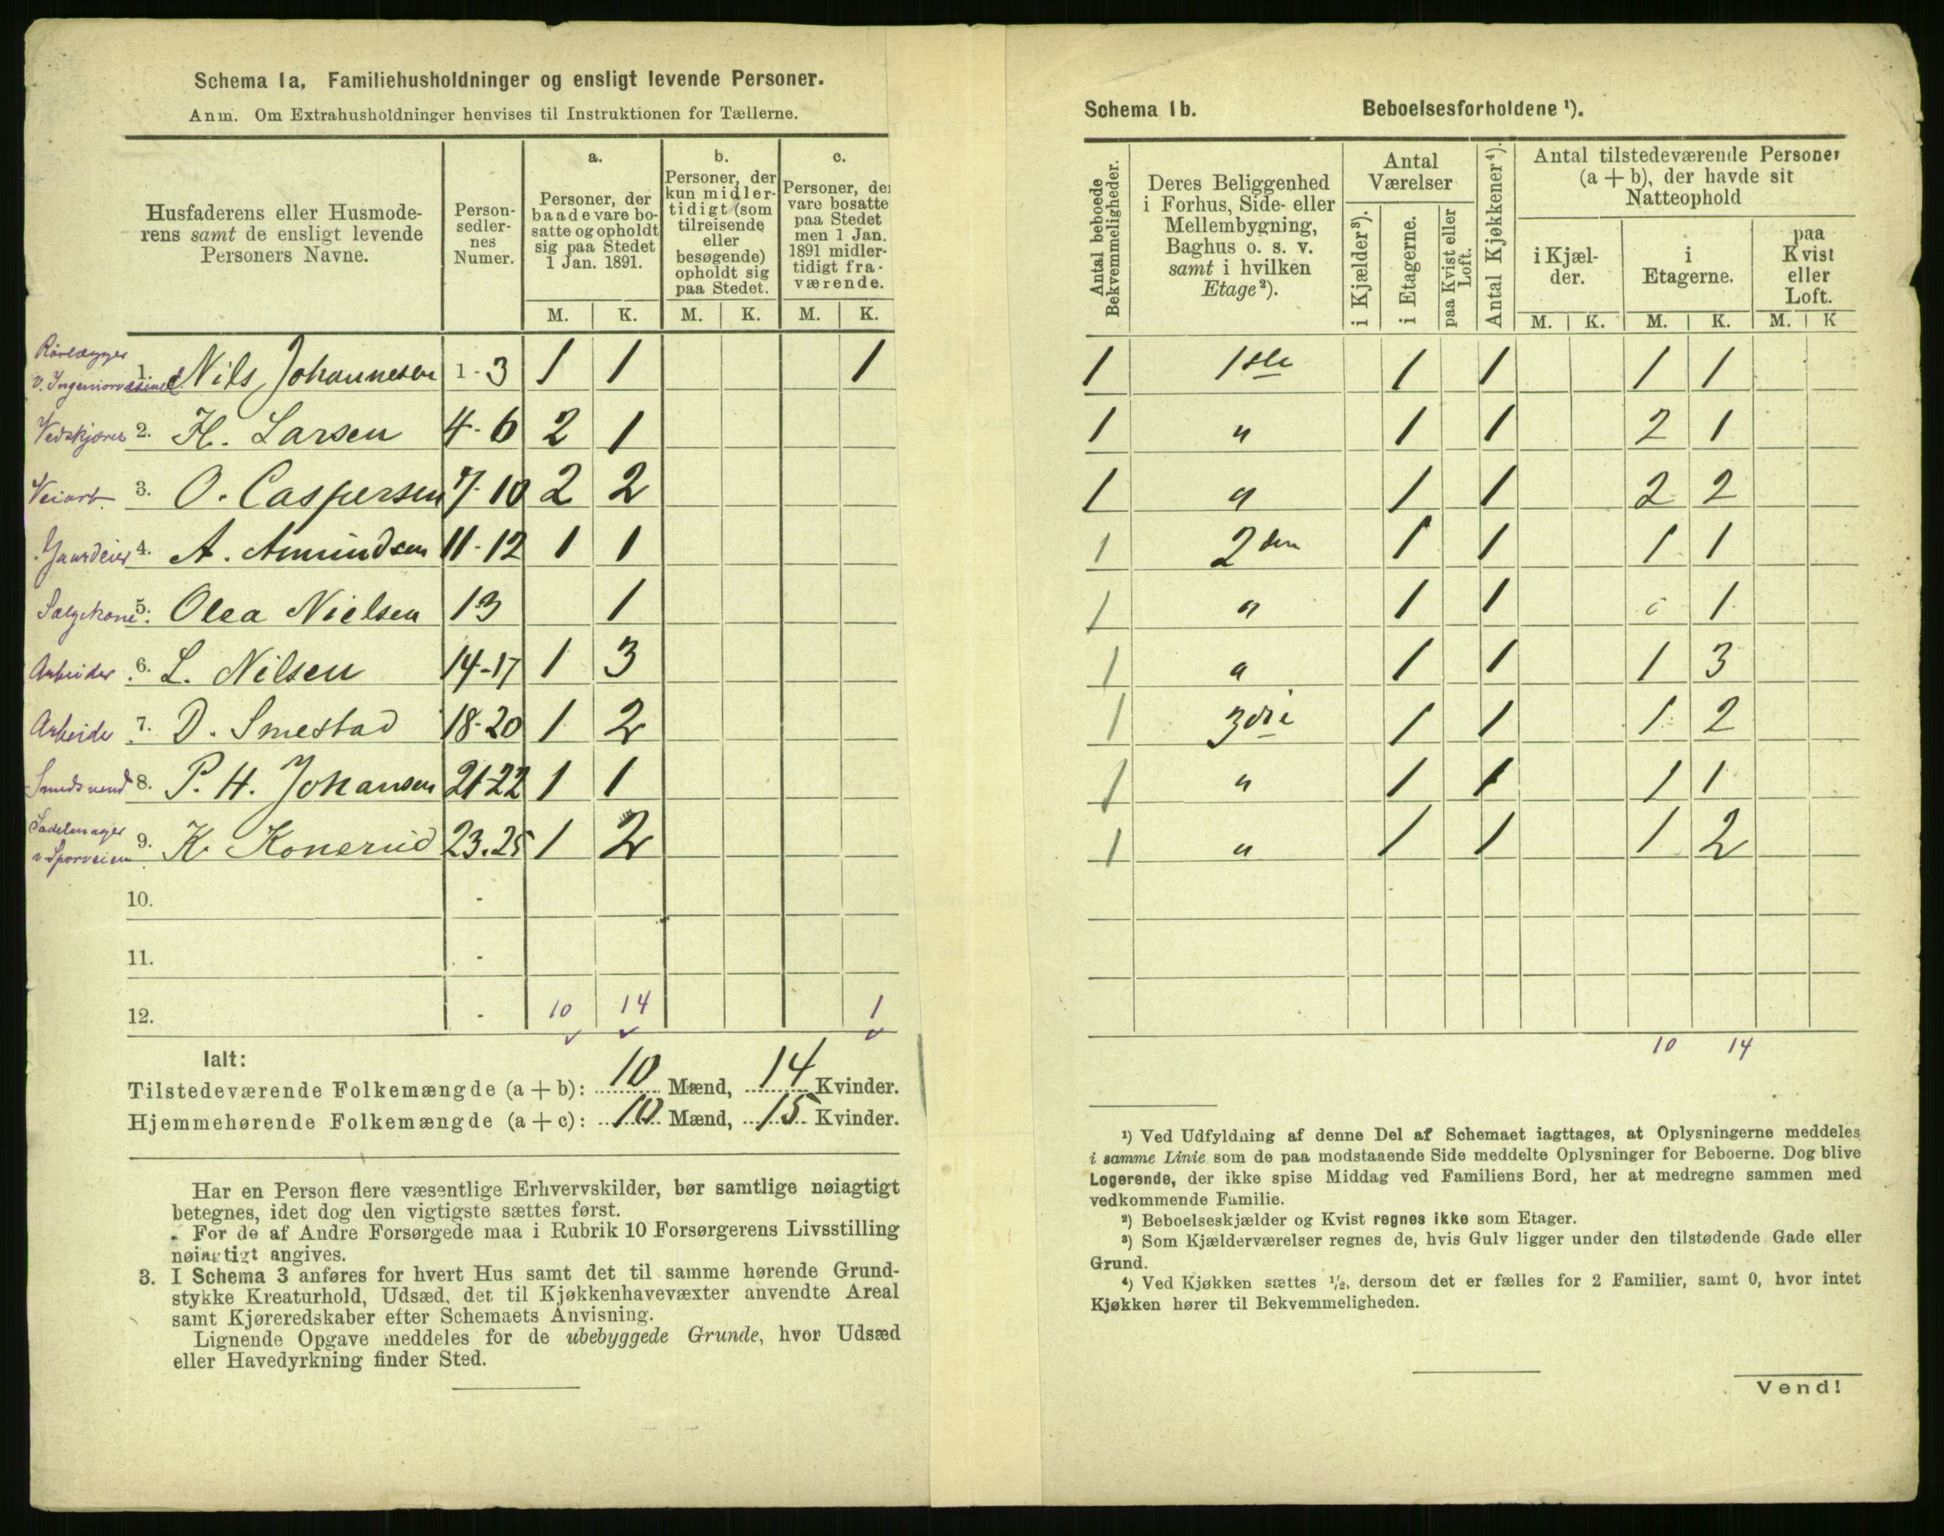 Schema 1a, Familiehusholdninger og ensligt levende Personer.
Anm. Om Extrahusholdninger henvises til Instruktionen for Tællerne.
Husfaderens eller Husmode-
rens samt de ensligt levende
Personers Navne.
Person-
sedler-
nes
Numer.
a.
Personer, der
baade vare bo-
satte og opholdt
sig paa Stedet
1 Jan. 1891.
b.
Personer, der
kun midler-
tidigt (som
tilreisende
eller
besøgende)
opholdt sig
paa Stedet.
c.
Personer, der
vare bosatte
paa Stedet
men 1 Jan.
1891 midler-
tidigt fra-
værende.
M. K. M. K. M. K.
Rørlægger
v. Ingeniorvæsenet
1. Nils Johannesen 1-3 1 1 1
Vedskjærer 2. H. Larsen 4-6 2 1
Veiarb. 3. O. Caspersen 7-10 2 2
Gaardeier 4. A. Amundsen 11-12 1 1
Sælgekone 5. Olea Nielsen 13 1
Arbeider 6. L. Nilsen 14-17 1 3
Arbeide 7. D. Smestad 18-20 1 2
Smedsvend 8. P. H. Johansen 21-22 1 1
Sadelmager
v. Sporveien
9. K. Konerud 23-25 1 2
10. -
11. -
12. - 10 14 1
Ialt:
Tilstedeværende Folkemængde (a + b): 10 Mænd, 14 Kvinder.
Hjemmehørende Folkemængde (a + c): 10 Mænd, 15 Kvinder.
Har en Person flere væsentlige Erhvervskilder, bør samtlige nøiagtigt
betegnes, idet dog den vigtigste sættes først.
For de af Andre Forsørgede maa i Rubrik 10 Forsørgerens Livsstilling
nøiagtigt angives.
3. I Schema 3 anføres for hvert Hus samt det til samme hørende Grund-
stykke Kreaturhold, Udsæd, det til Kjøkkenhavevæxter anvendte Areal
samt Kjøreredskaber efter Schemaets Anvisning.
Lignende Opgave meddeles for de ubebyggede Grunde, hvor Udsæd
eller Havedyrkning finder Sted.
Schema 1b. Beboelsesforholdene ¹).
Antal beboede
Bekvemmeligheder.
Deres Beliggenhed
i Forhus, Side- eller
Mellembygning,
Baghus o. s. v.
samt i hvilken
Etage ²).
Antal
Værelser
i Kjælder ³).
i Etagerne.
paa Kvist eller
Loft.
Antal Kjøkkener ⁴).
Antal tilstedeværende Personer
(a + b), der havde sit
Natteophold
i Kjæl-
der.
i
Etagerne.
paa
Kvist
eller
Loft.
M. K. M. K. M. K
1 1ste 1 1 1 1
1 " 1 1 2 1
1 " 1 1 2 2
1 2den 1 1 1 1
1 " 1 1 0 1
1 " 1 1 1 3
1 3die 1 1 1 2
1 " 1 1 1 1
1 " 1 1 1 2
10 14
¹) Ved Udfyldning af denne Del af Schemaet iagttages, at Oplysningerne meddeles
i samme Linie som de paa modstaaende Side meddelte Oplysninger for Beboerne. Dog blive
Logerende, der ikke spise Middag ved Familiens Bord, her at medregne sammen med
vedkommende Familie.
²) Beboelseskjælder og Kvist regnes ikke som Etager.
³) Som Kjælderværelser regnes de, hvis Gulv ligger under den tilstødende Gade eller
Grund.
⁴) Ved Kjøkken sættes ½, dersom det er fælles for 2 Familier, samt 0, hvor intet
Kjøkken hører til Bekvemmeligheden.
Vend!